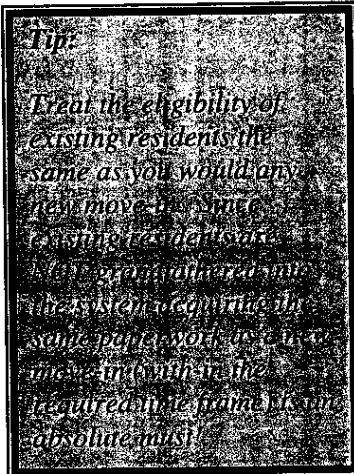 Tip:
Treat the eligibility of
existing residents the
same as you would any
new move-in. Since
existing residents are
NOT grandfathered into
the system acquiring the
same paperwork as a new
move-in (with in the
required time frame) is an
absolute must!